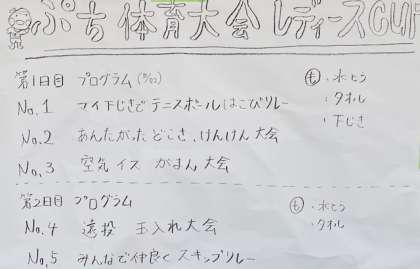 ぷち体育大会 レディースCUP
第1日目 プログラム
も ・水とう
No.1 マイ下じきで テニスボールはこびリレー
・タオル
・下じき
No.2 あんたがったどこさ、けんけん大会
No.3 空気イス がまん大会
第2日目 プログラム
も ・水とう
No.4 遠投 玉入れ大会
・タオル
No.5 みんなで仲良くスキップリレー